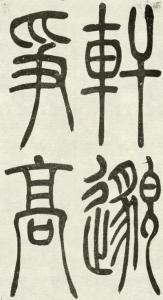 軒邈
爭高